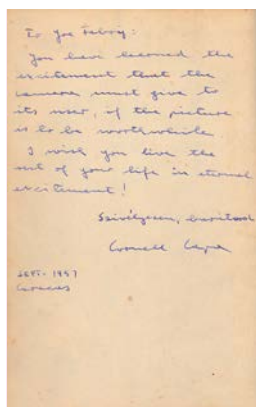 To Joe Fabry:
You have learned the
excitement that the
camera must give to
its user, if the picture
is to be worthwhile
I wish you live the
rest of your life in eternal
excitement!
Szivélyesen, barátod
Cornell Capa
SEPT- 1957
Caracas